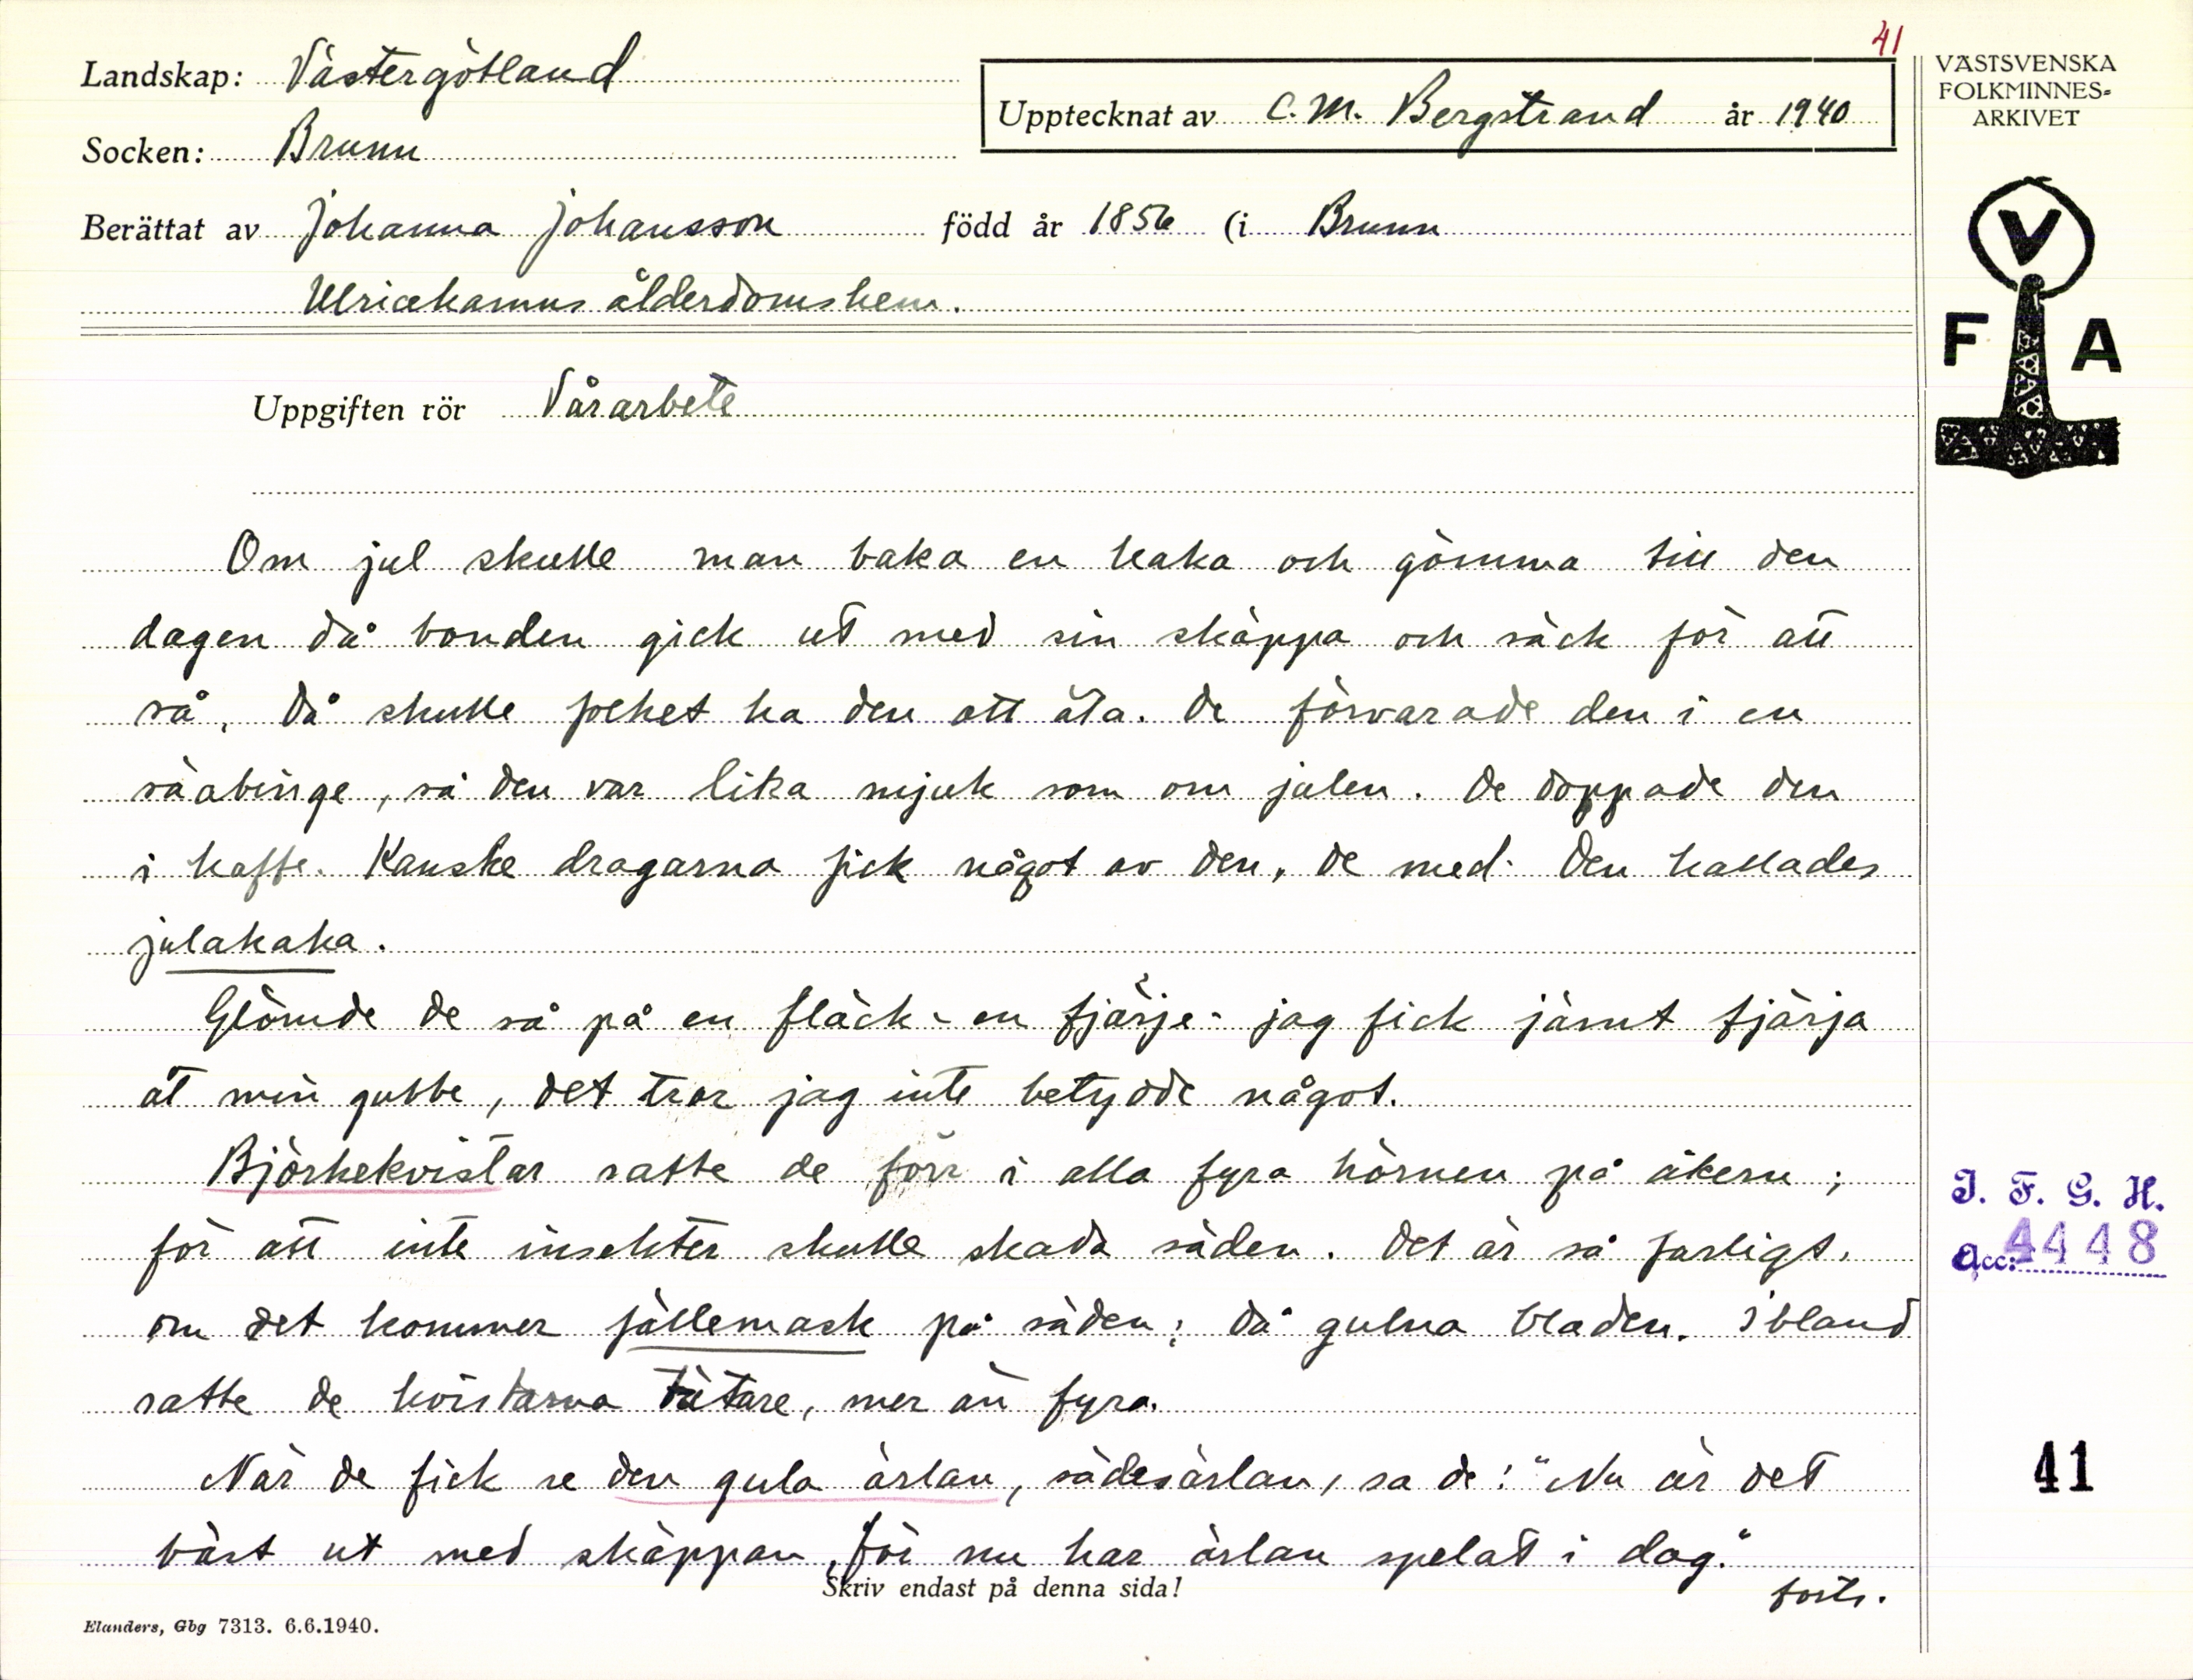 41
Landskap: Västergötland
Upptecknat av C. M. Bergstrand år 1940
VÄSTSVENSKA
FOLKMINNES-
ARKIVET
Socken: Brunn
Berättat av Johanna Johansson född år 1856 (i Brunn
Ulricehamns ålderdomshem.
V
F A
Uppgiften rör Vårarbete
Om jul skulle man baka en kaka och gömma till den
dagen då bonden gick ut med sin skäppa och säck för att
så, då skulle folket ha den att äta. De förvarade den i en
säabinge, så den var lika mjuk som om julen. De doppade den
i kaffe. Kanske dragarna fick något av den, de med. Den kallades
julakaka.
Glömde de så på en fläck - en fjärje - jag fick jämt fjärja
åt min gubbe, det tror jag inte betydde något.
Björkekvistar satte de förr i alla fyra hörnen på åkern;
för att inte insekter skulle skada säden. Det är så farligt,
om det kommer jällemask på säden; då gulna bladen. Ibland
satte de kvistarna tätare, mer än fyra.
När de fick se den gula ärlan, sädesärlan, sa de: "Nu är det
bäst ut med skäppan, för nu har ärlan spelat i dag."
Skriv endast på denna sida!
forts.
Elanders, Gbg 7313. 6.6.1940.
I. F. G. H.
Acc: 4448
41